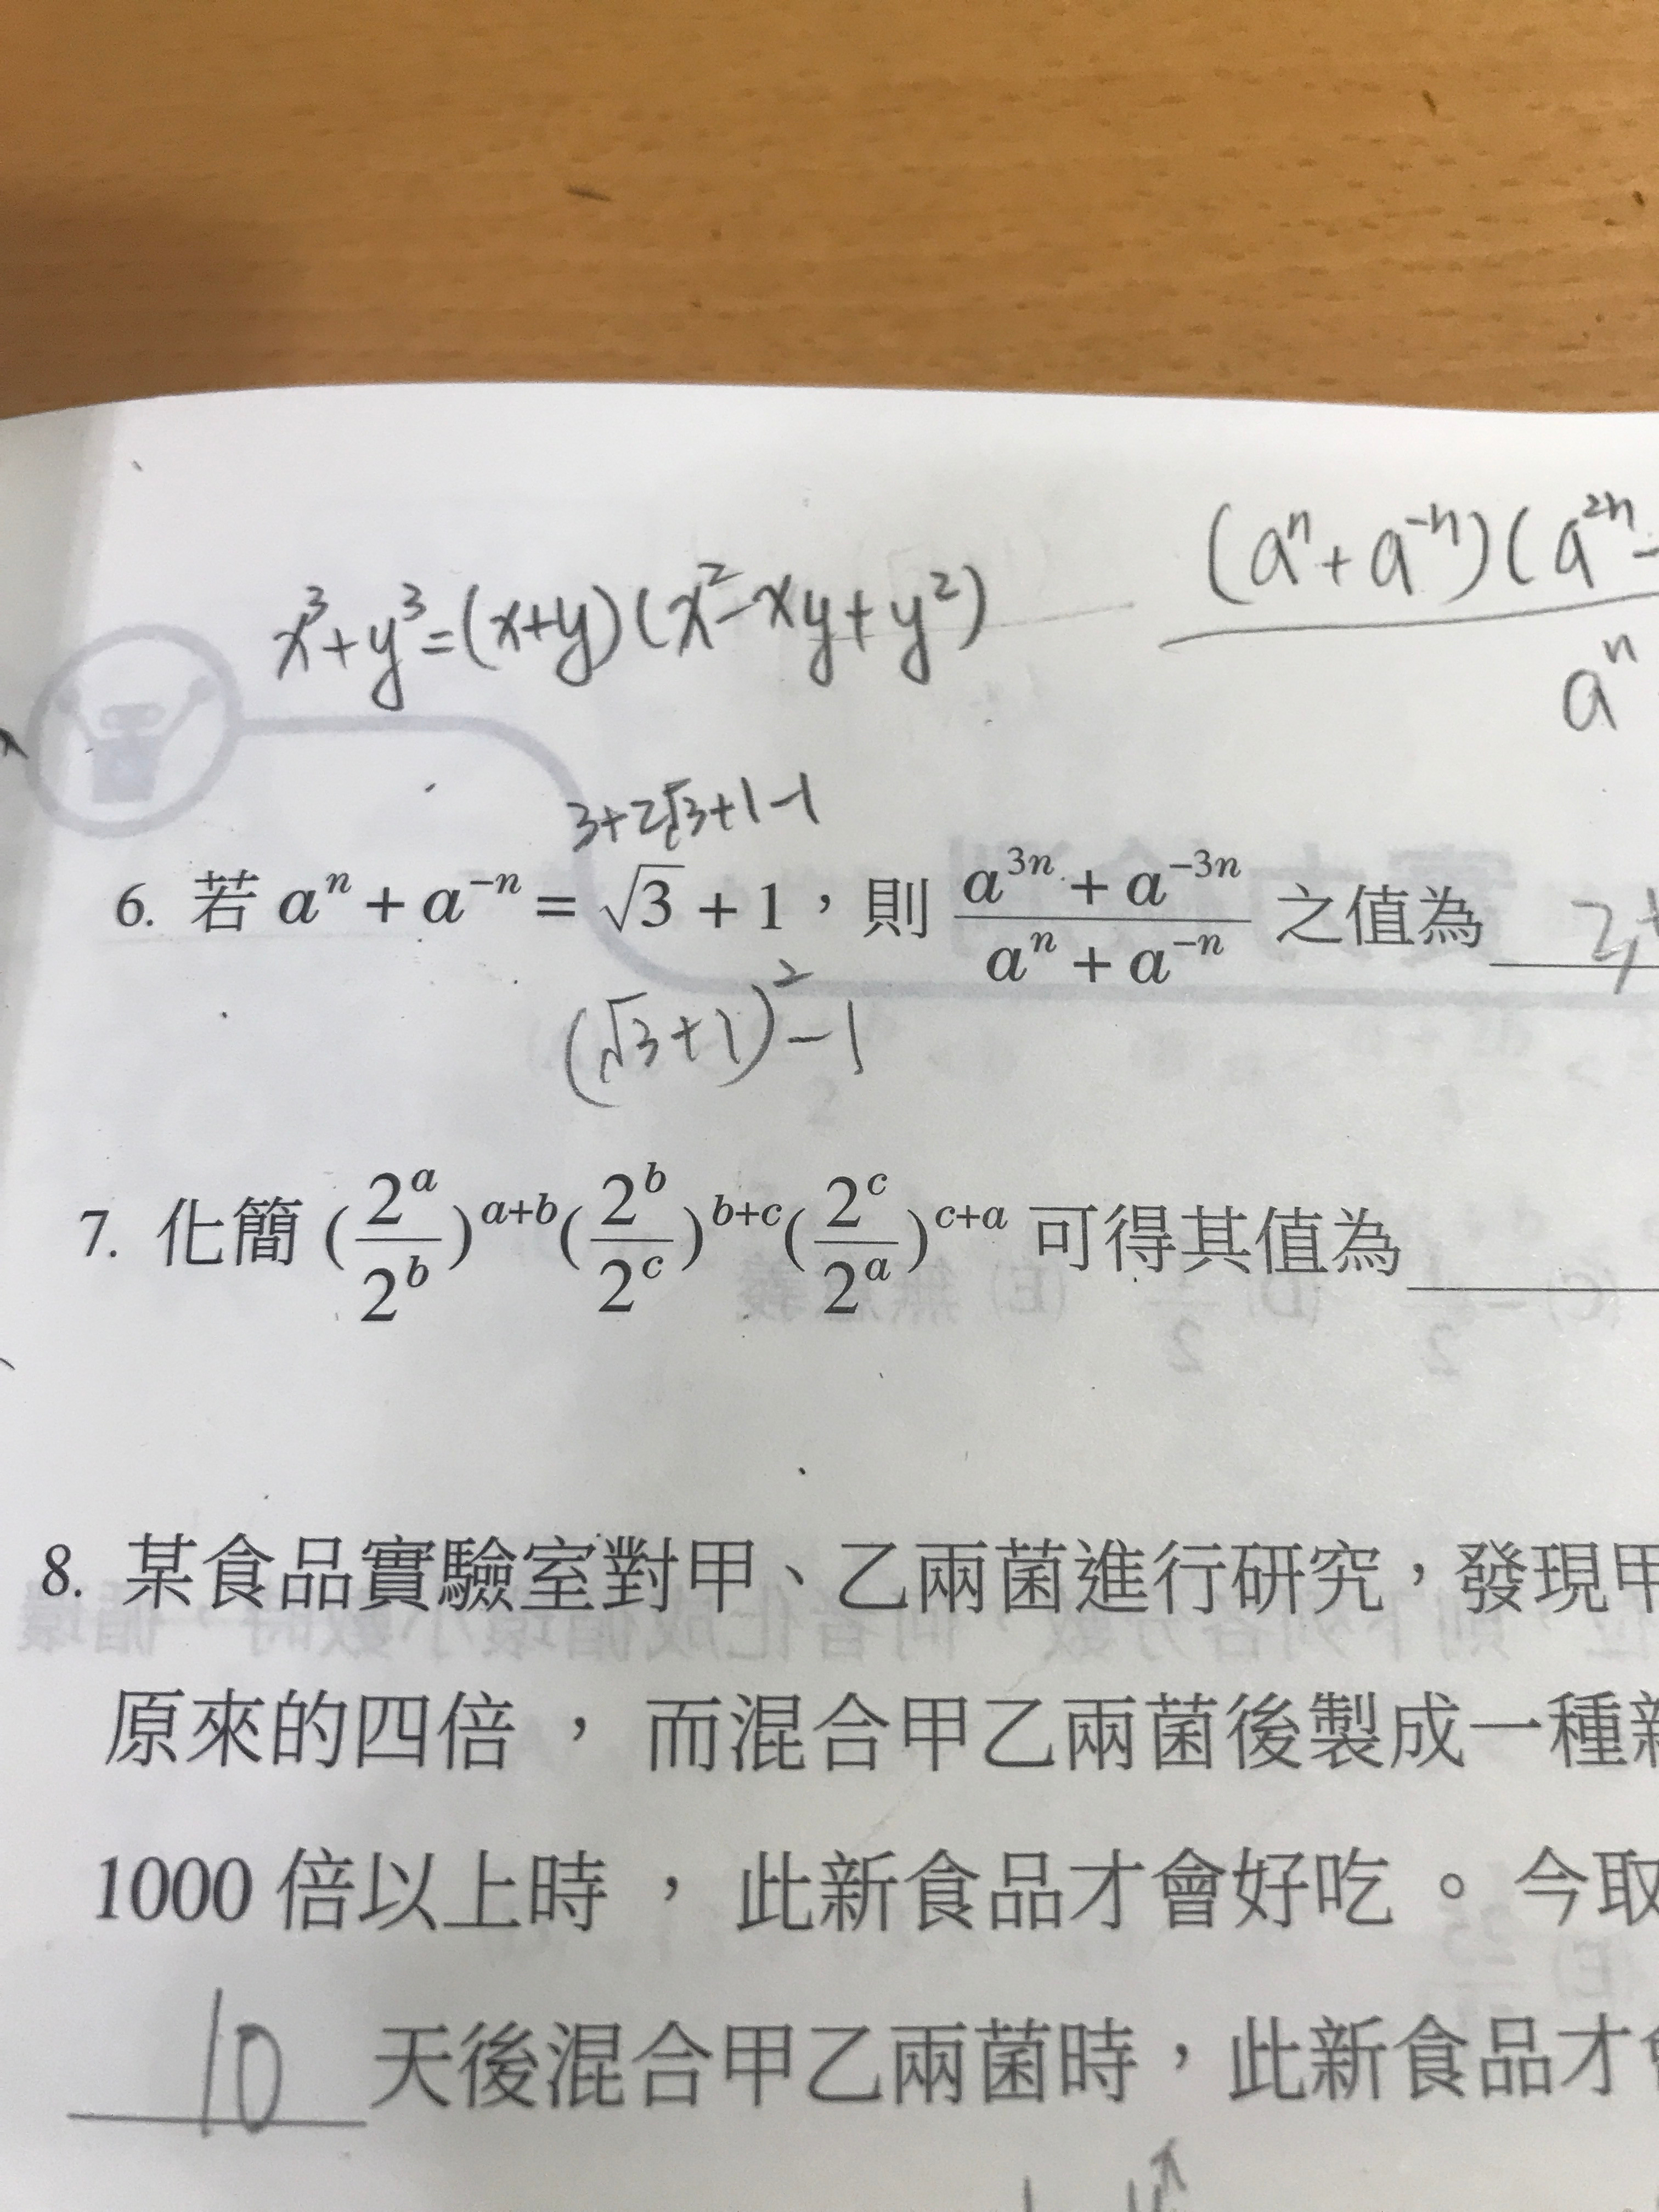 x³+y³=(x+y)(x²-xy+y²)
(aⁿ+a⁻ⁿ)(a²ⁿ-
aⁿ
3+2√3+1-1
6. 若 aⁿ + a⁻ⁿ = √3 + 1，則 (a³ⁿ + a⁻³ⁿ)/(aⁿ + a⁻ⁿ) 之值為
(√3+1)²-1
7. 化簡 (2ᵃ/2ᵇ)ᵃ⁺ᵇ(2ᵇ/2ᶜ)ᵇ⁺ᶜ(2ᶜ/2ᵃ)ᶜ⁺ᵃ 可得其值為
8. 某食品實驗室對甲、乙兩菌進行研究，發現甲
原來的四倍，而混合甲乙兩菌後製成一種新
1000 倍以上時，此新食品才會好吃。今取
10 天後混合甲乙兩菌時，此新食品才會